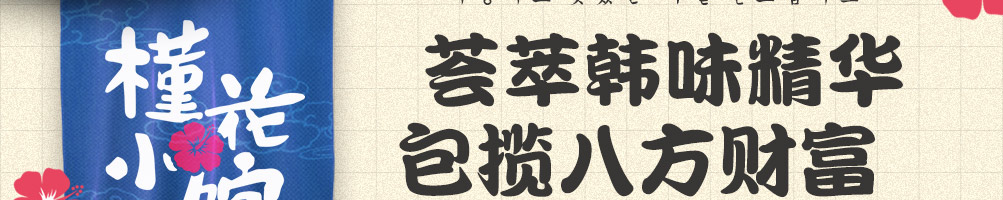 槿花
小
荟萃韩味精华
包揽八方财富